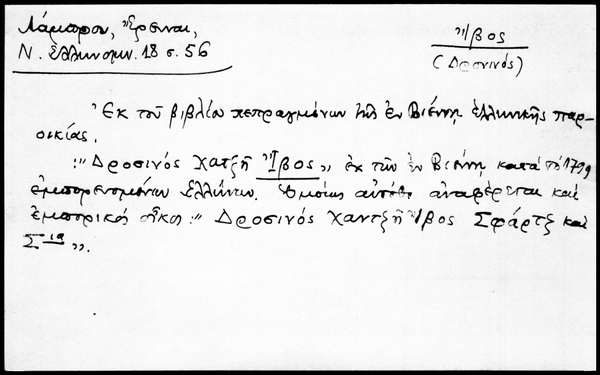 Λάμπρου, Ἔρευναι,
Ν. Ἑλληνομν. 18 σ. 56
Ἴβος
(Δροσινός)
Ἐκ τοῦ βιβλίου πεπραγμένων τῆς ἐν Βιέννῃ ἑλληνικῆς παρ-
οικίας.
:" Δροσινός Χατζῆ Ἴβος„ ἐκ τῶν ἐν Βιέννῃ κατά τό 1799
ἐμπορευομένων Ἑλλήνων. Ὁμοίως αὐτόθι ἀναφέρεται καί
ἐμπορικός οἶκος:" Δροσινός Χαντζῆ Ἴβος Σφάρτζ καί
Σία„.